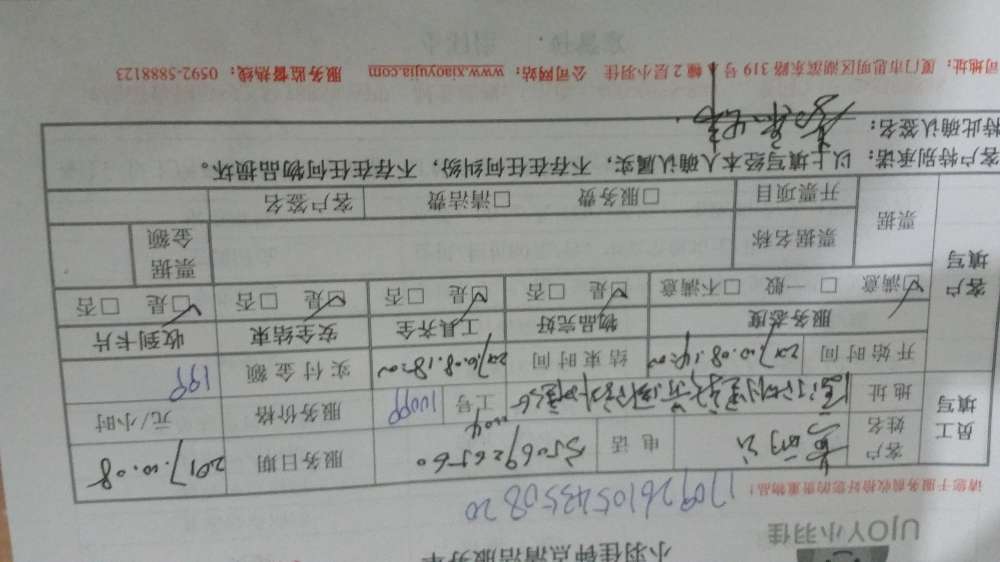 小羽佳钟点清洁服务单
UJOY小羽佳
请您于服务前收拾好您的贵重物品!
员工填写
客户姓名 电话 服务日期 2017.10.08
地址 工号 11099 服务价格 元/小时
开始时间 2017.10.08.14:00 结束时间 2017.10.08.18:00 实付金额 199
客户填写
服务态度 物品完好 工具齐全 安全结束 收到卡片
☑满意 □一般 □不满意 ☑是 □否 ☑是 □否 ☑是 □否 ☑是 □否
票据 票据名称 票据金额
开票项目 □服务费 □清洁费 客户签名
客户特别承诺:以上填写经本人确认属实,不存在任何纠纷,不存在任何物品损坏。
特此确认签名:
司地址:厦门市思明区湖滨东路319号 幢2层小羽佳 公司网站:www.xiaoyujia.com 服务监督热线:0592-5888123